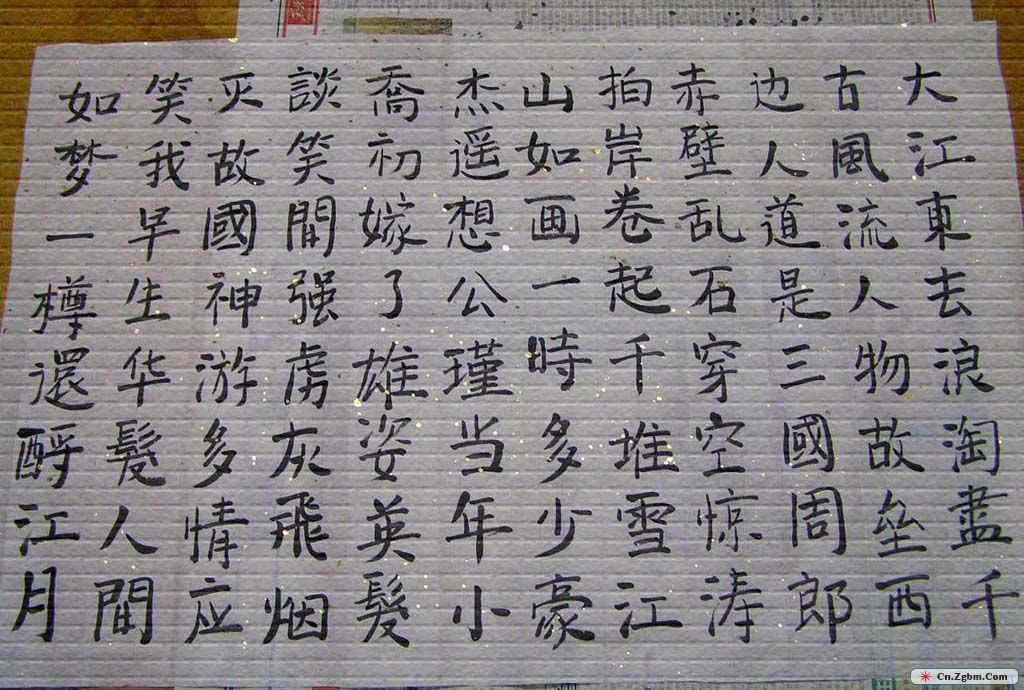 大江東去浪淘盡千
古風流人物故垒西
边人道是三國周郎
赤壁乱石穿空惊涛
拍岸卷起千堆雪江
山如画一時多少豪
杰遥想公瑾当年小
喬初嫁了雄姿英髮
談笑間强虏灰飛烟
灭故國神游多情应
笑我早生华髮人間
如梦一樽還酹江月
Cn.Zgbm.Com